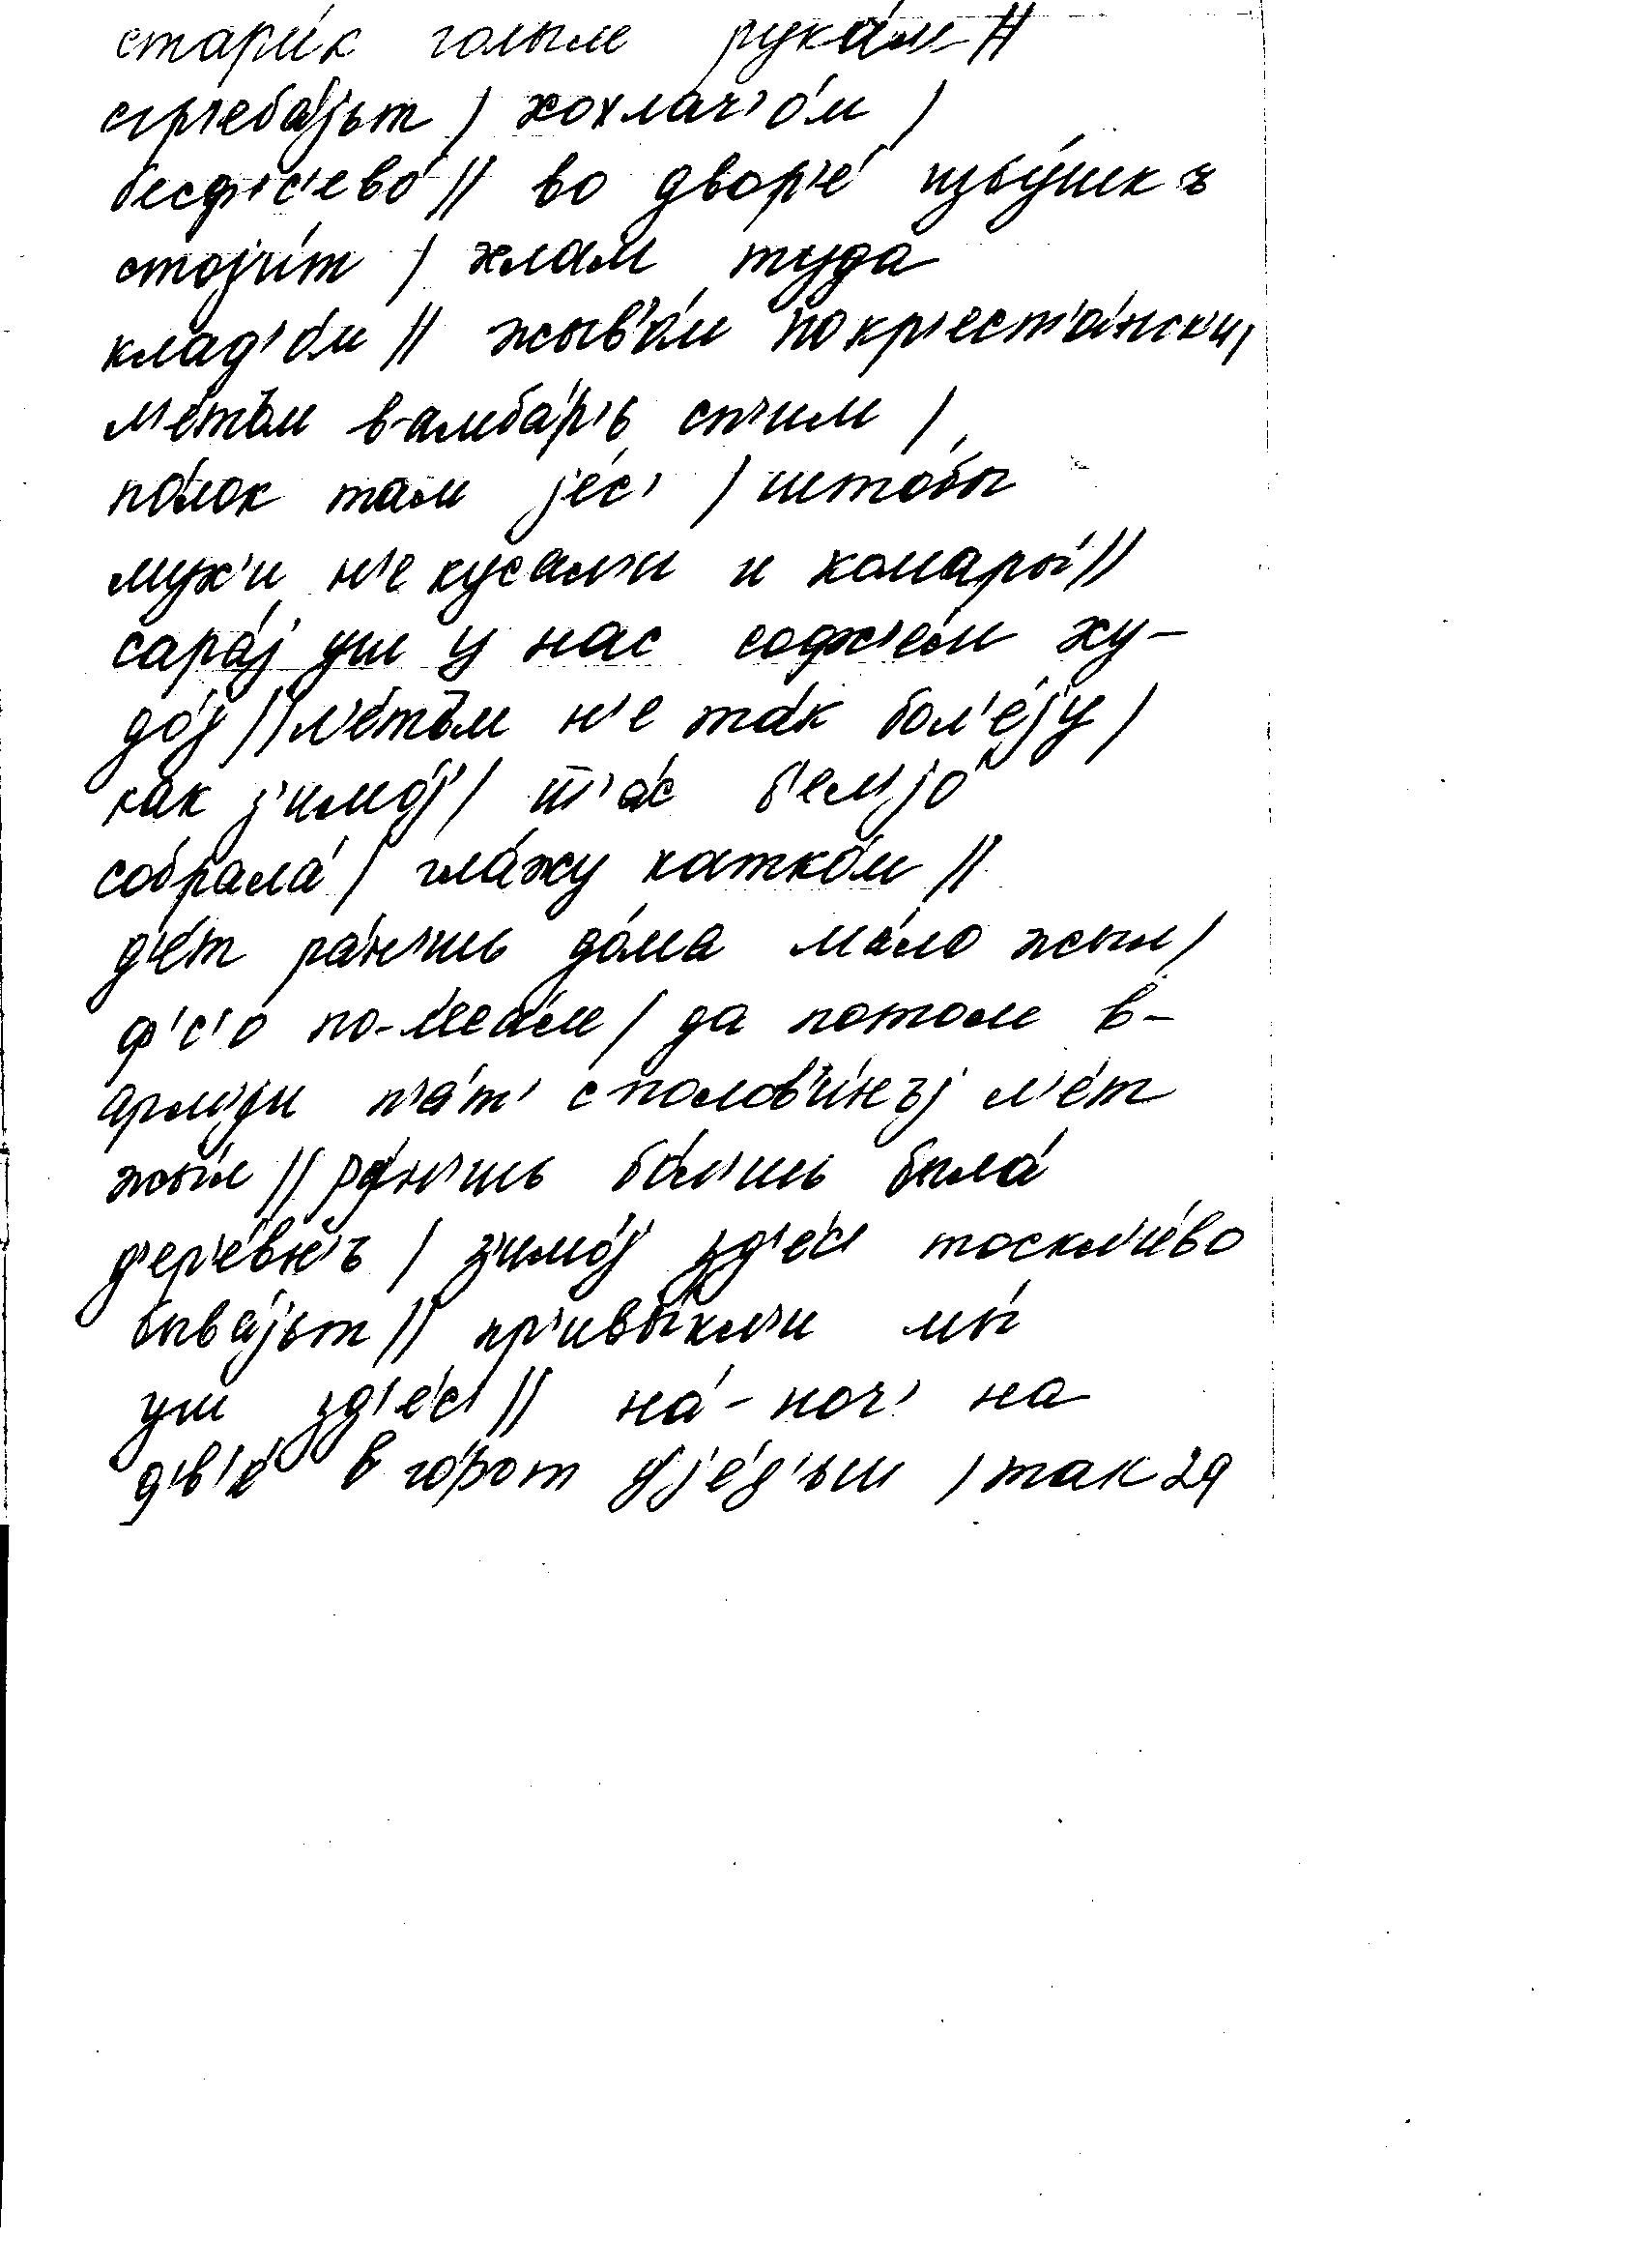 стари́к голым рука́м //
сгр'еба́јьт / хохлач'о́м /
бесф'с'ево́ // во двор'е́ избу́шкъ
стоји́т / хлам туда
клад'о́м // жыв'о́м по кр'ест'а́нски /
л'е́тъм в-амба́р'ь сп'им /
по́лок там је́с' / штобы
мух'и н'е кусал'и и комары́ //
сара́ј уш у нас софс'е́м ху-
до́ј // л'е́тъм н'е та́к бол'е́ју /
как з'имо́ј / ш'а́с б'ел'јо́
собрала́ / гла́жу катко́м //
д'е́т ра́н'шь до́ма ма́ло жыл /
ф'с'о по-леса́м / да потом в-
арм'ији п'а́т' с полов'и́нъј л'е́т
жы́л // ра́н'шь бо́л'шь была́
д'ер'е́вн'ъ / з'имо́ј зд'е́с' тоскл'и́во
быва́јьт // пр'ивы́кл'и мы́
уш зд'е́с' // на́-ноч' на
дв'е́ в го́рот ује́д'ьш / так зя